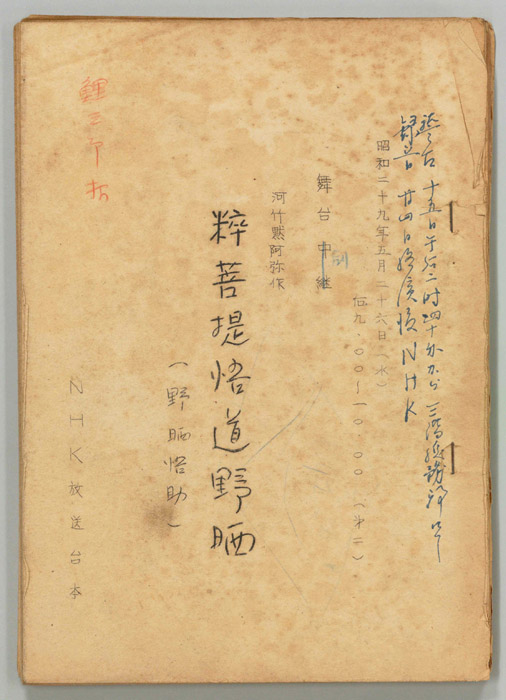 稽古 十五日午后二時四十分から 三階
録音 廿四日終演後NHK
昭和二十九年五月二十六日(水)
后九・〇〇〜一〇・〇〇(第二)
舞台中継
河竹黙阿弥作
粋菩提悟道野晒
(野晒悟助)
NHK放送台本
鯉三郎